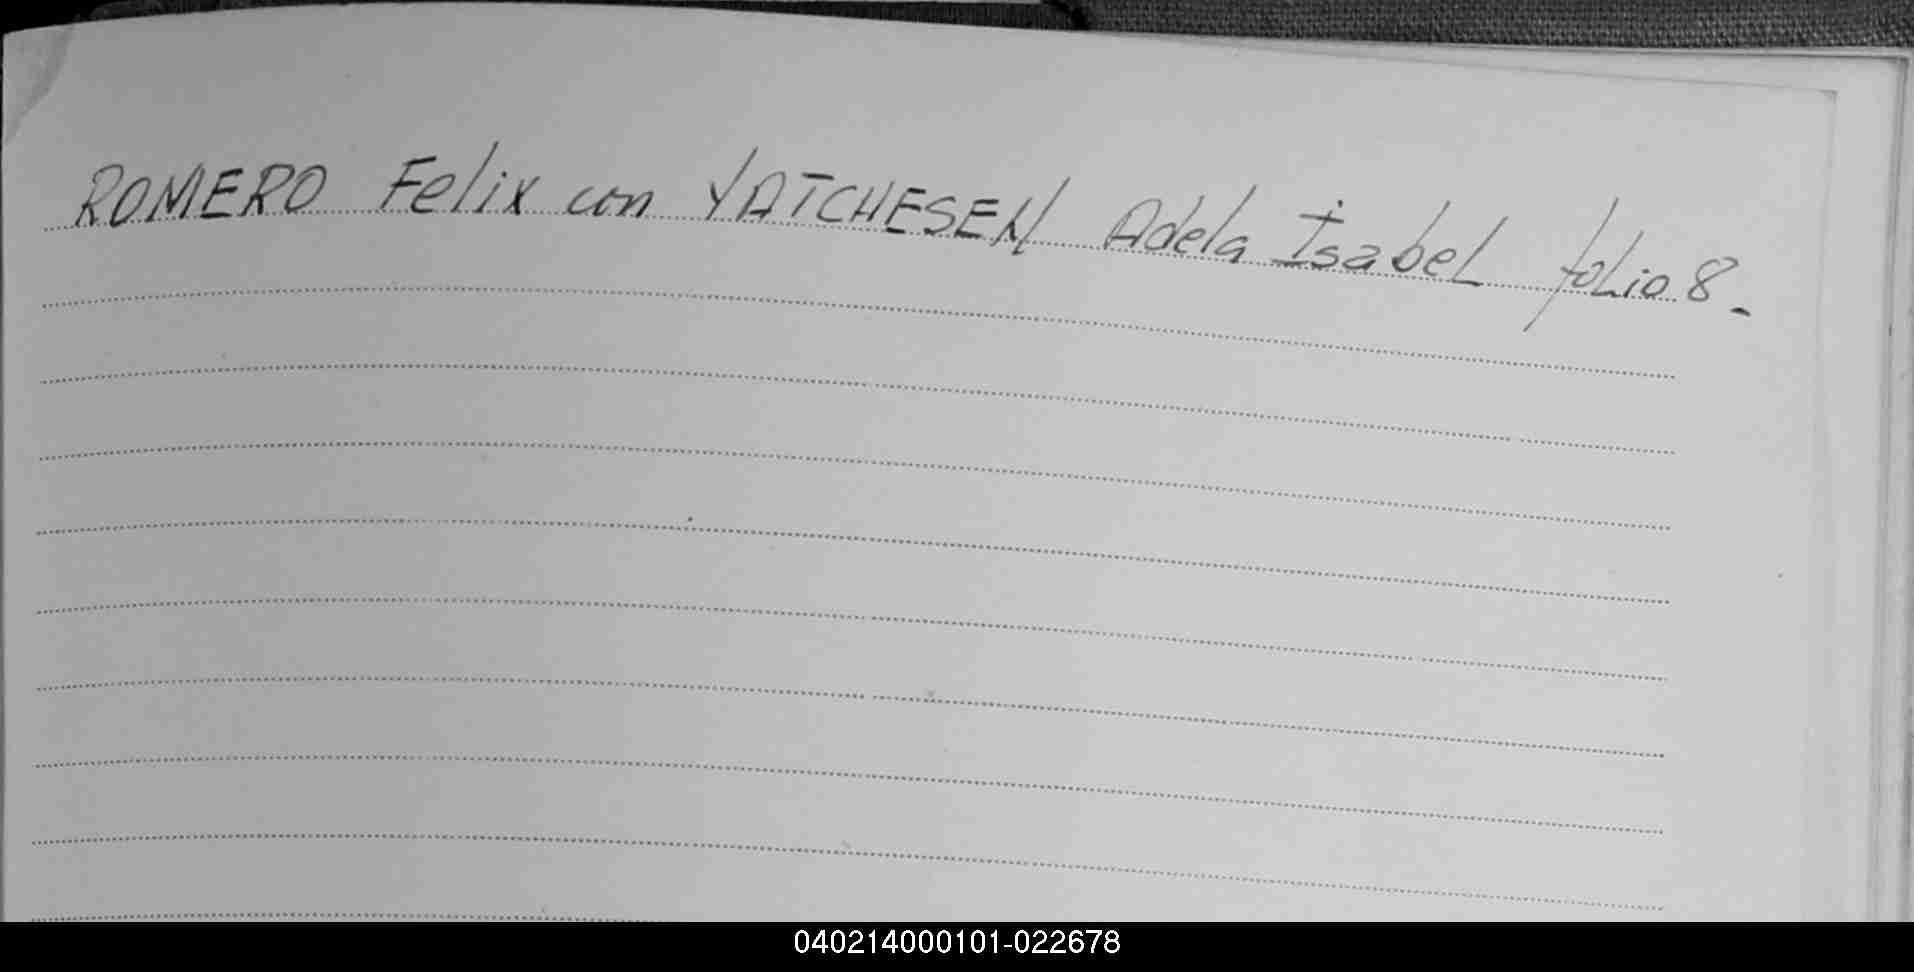 ROMERO Felix con YATCHESEN Adela Isabel folio 8.
040214000101-022678